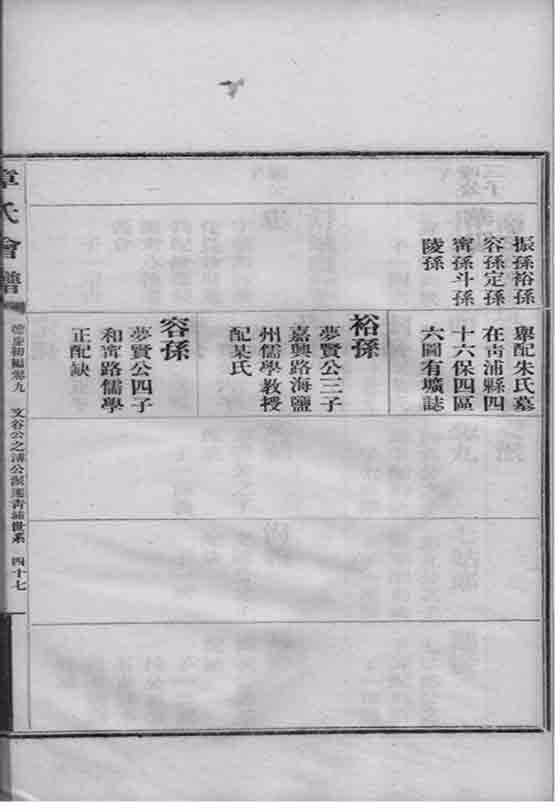 振孫裕孫
容孫定孫
甯孫斗孫
陵孫
舉配朱氏墓
在靑浦縣四
十六保四區
六圖有壙誌
裕孫
夢賢公三子
嘉興路海鹽
州儒學教授
配某氏
容孫
夢賢公四子
和甯路儒學
正配缺
章氏會譜
德慶初編卷九
文谷公之濤公派遷靑浦世系
四十七